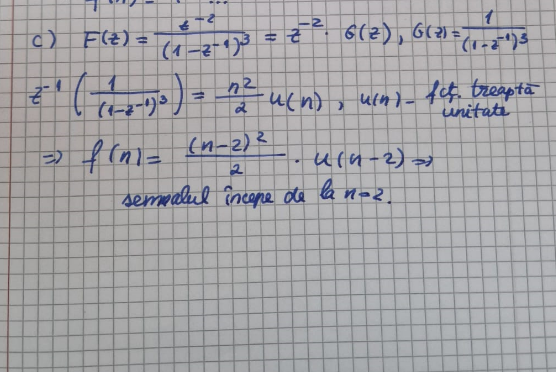 c) F(z) = z⁻² / (1-z⁻¹)³ = z⁻² · G(z), G(z) = 1 / (1-z⁻¹)³
z⁻¹ ( 1 / (1-z⁻¹)³ ) = n² / 2 u(n), u(n) - fcț. treaptă
unitate
=> f(n) = (n-2)² / 2 · u(n-2) =>
semnalul începe de la n=2.